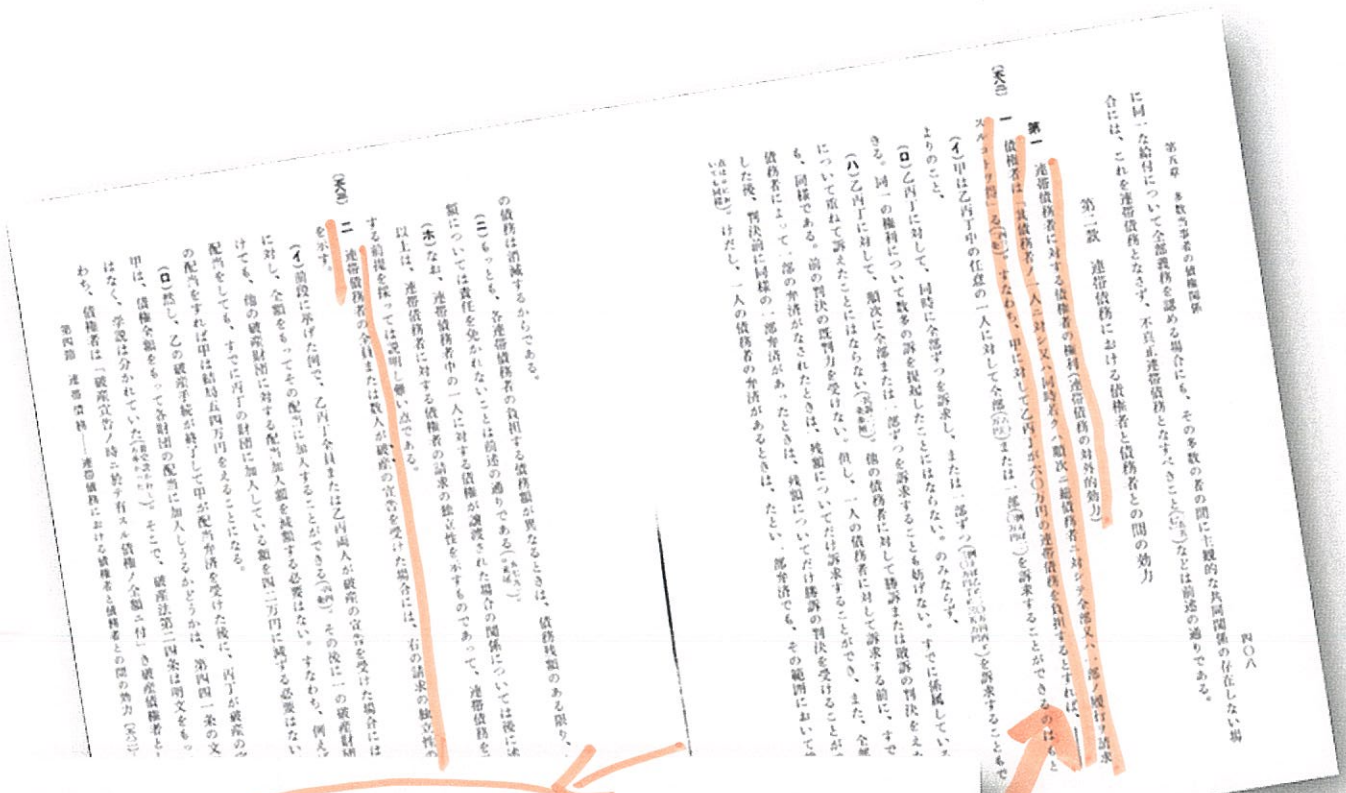 第五章 多数当事者の債権関係
四〇八
に同一な給付について全部義務を認める場合にも、その多数の者の間に主観的な共同関係の存在しない場
合には、これを連帯債務となさず、不真正連帯債務となすべきこと などは前述の通りである。
第二款 連帯債務における債権者と債務者との間の効力
第一 連帯債務者に対する債権者の権利(連帯債務の対外的効力)
一 債権者は「其債務者ノ一人ニ対シ又ハ同時若クハ順次ニ総債務者ニ対シテ全部又ハ一部ノ履行ヲ請求
スルコトヲ得」る 。すなわち、甲に対して乙丙丁が六〇万円の連帯債務を負担するとすれば、
(イ)甲は乙丙丁中の任意の一人に対して全部 または一部 を訴求することができるのはもと
よりのこと、
(ロ)乙丙丁に対して、同時に全部ずつを訴求し、または一部ずつ を訴求することもで
きる。同一の権利について数多の訴を提起したことにはならない。のみならず、
(ハ)乙丙丁に対して、順次に全部または一部ずつを訴求することも妨げない。すでに係属している
について重ねて訴えたことにはならない 。他の債務者に対して勝訴または敗訴の判決をえた
も、同様である。前の判決の既判力を受けない。但し、一人の債務者に対して訴求する前に、すで
債務者によって一部の弁済がなされたときは、残額についてだけ訴求することができ、また、全部
した後、判決前に同様の一部弁済があったときは、残額についてだけ勝訴の判決を受けることが
。けだし、一人の債務者の弁済があるときは、たとい一部弁済でも、その範囲において
の債務は消滅するからである。
(ニ)もっとも、各連帯債務者の負担する債務額が異なるときは、債務残額のある限り、
額については責任を免かれないことは前述の通りである 。
(ホ)なお、連帯債務者中の一人に対する債権が譲渡された場合の関係については後に述
以上は、連帯債務者に対する債権者の請求の独立性を示すものであって、連帯債務を
する前提を採っては説明し難い点である。
二 連帯債務者の全員または数人が破産の宣告を受けた場合には、右の請求の独立性の
を示す。
(イ)前段に挙げた例で、乙丙丁全員または乙丙両人が破産の宣告を受けた場合には
に対し、全額をもってその配当に加入することができる 。その後に一の破産財団
けても、他の破産財団に対する配当加入額を減額する必要はない。すなわち、例えば
配当をしても、すでに丙丁の財団に加入している額を四二万円に減ずる必要はない
の配当をすれば甲は結局五四万円をえることになる。
(ロ)然し、乙の破産手続が終了して甲が配当弁済を受けた後に、丙丁が破産の宣
甲は、債権全額をもって各財団の配当に加入しうるかどうかは、第四四一条の文
はなく、学説は分かれていた 。そこで、破産法第二四条は明文をもっ
わち、債権者は「破産宣告ノ時ニ於テ有スル債権ノ全額ニ付」き破産債権者とし
第四節 連帯債務――連帯債務における債権者と債務者との間の効力